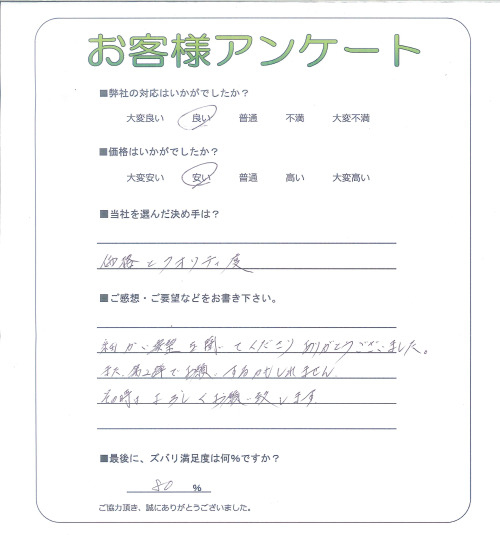 お客様アンケート
■弊社の対応はいかがでしたか？
大変良い 良い 普通 不満 大変不満
■価格はいかがでしたか？
大変安い 安い 普通 高い 大変高い
■当社を選んだ決め手は？
価格とクオリティ度
■ご感想・ご要望などをお書き下さい。
ご要望を聞いてくださりありがとうございました。
また、第2弾でお願いするかもしれません
その時はよろしくお願い致します
■最後に、ズバリ満足度は何％ですか？
80 %
ご協力頂き、誠にありがとうございました。